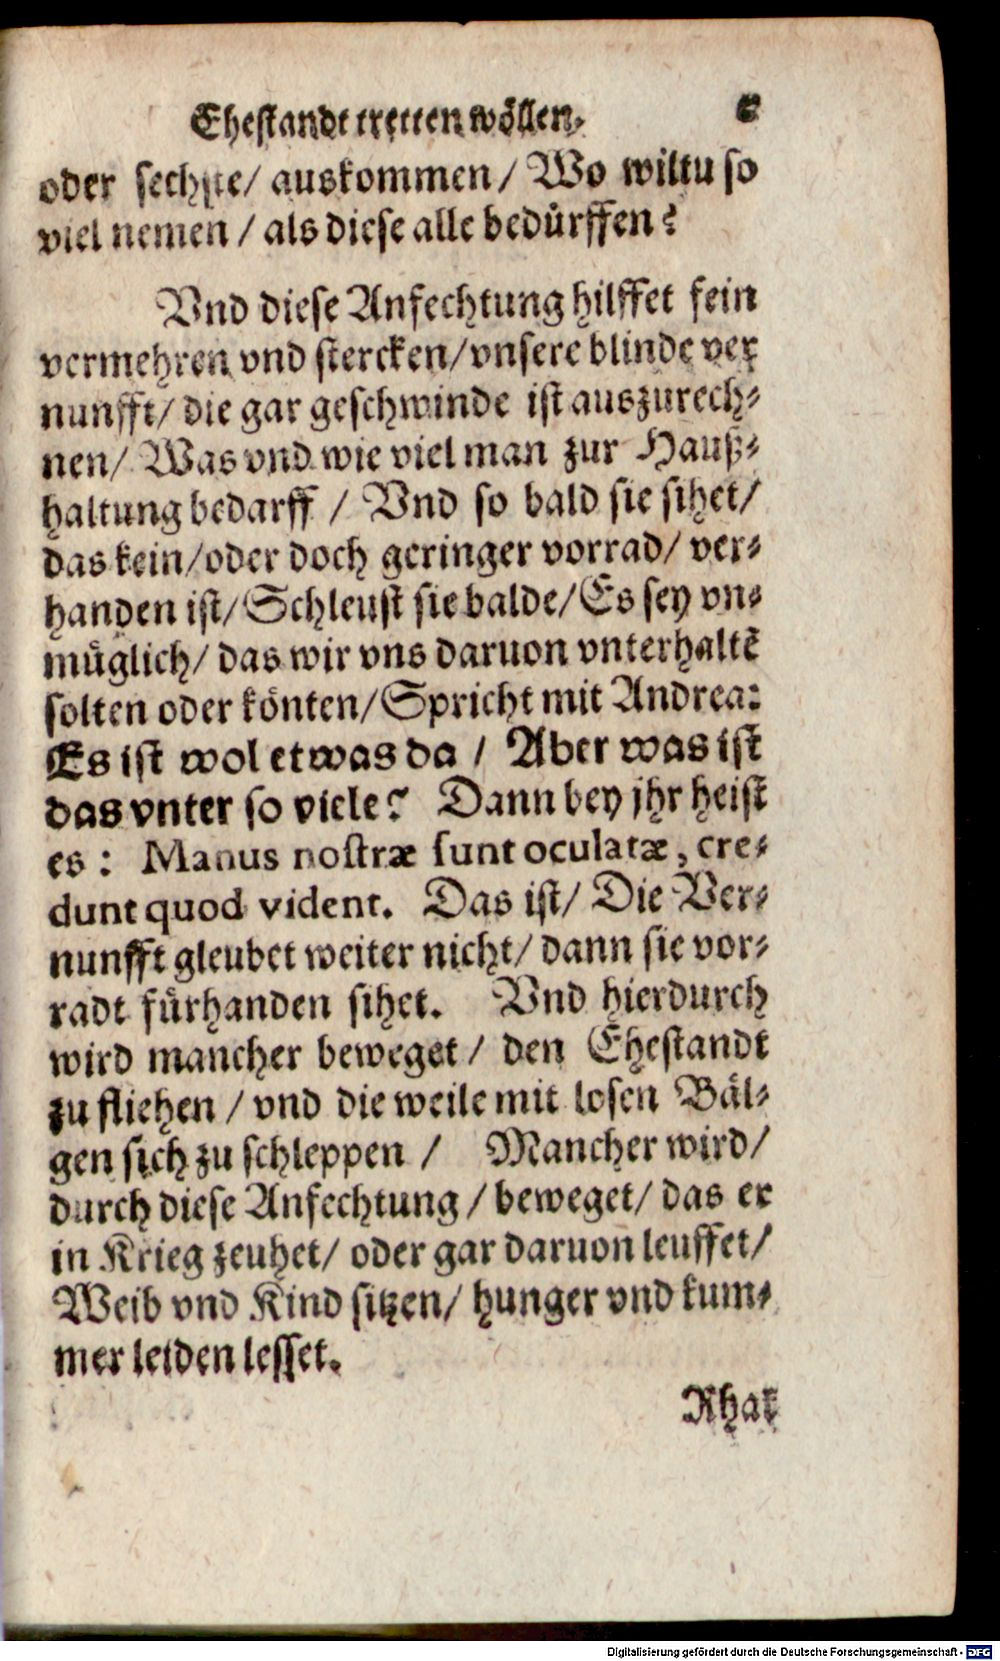 Ehestandt tretten wöllen.
oder sechste/ auskommen/ Wo wiltu so
viel nemen / als diese alle bedürffen?
Vnd diese Anfechtung hilffet fein
vermehren vnd stercken/ vnsere blinde ver
nunfft/ die gar geschwinde ist auszurech-
nen/ Was vnd wie viel man zur Hauß-
haltung bedarff / Vnd so bald sie sihet/
das kein/ oder doch geringer vorrad/ ver-
handen ist/ Schleust sie balde/ Es sey vn-
müglich/ das wir vns daruon vnterhaltē
solten oder könten/ Spricht mit Andrea:
Es ist wol etwas da / Aber was ist
das vnter so viele? Dann bey jhr heist
es: Manus nostræ sunt oculatæ, cre-
dunt quod vident. Das ist/ Die Ver-
nunfft gleubet weiter nicht/ dann sie vor-
radt fürhanden sihet. Vnd hierdurch
wird mancher beweget / den Ehestandt
zu fliehen / vnd die weile mit losen Bäl-
gen sich zu schleppen / Mancher wird/
durch diese Anfechtung / beweget/ das er
in Krieg zeuhet/ oder gar daruon leuffet/
Weib vnd Kind sitzen/ hunger vnd kum-
mer leiden lesset.
Rhat
Digitalisierung gefördert durch die Deutsche Forschungsgemeinschaft - DFG